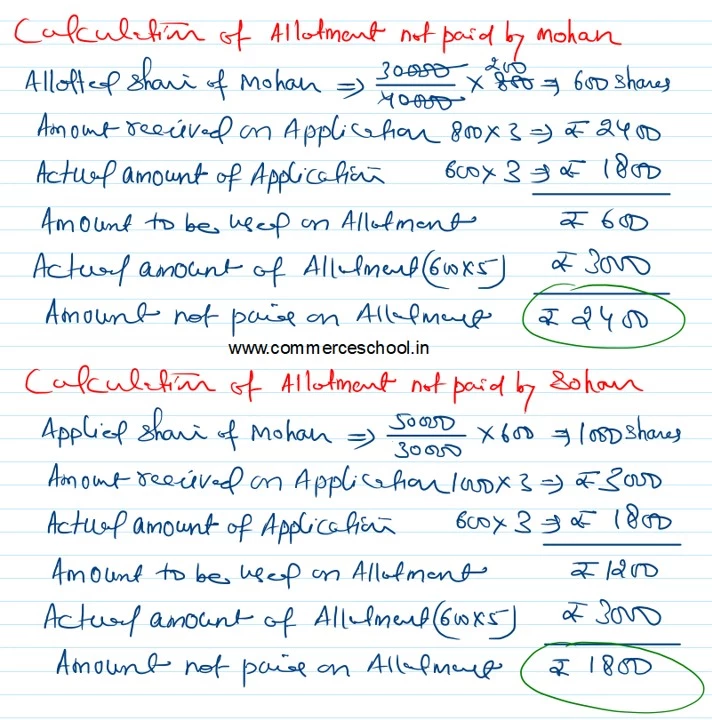 Calculation of Allotment not paid by Mohan
Allotted Share of Mohan ⇒ 30000/40000 × 800 200 ⇒ 600 Shares
Amount received on Application 800 × 3 ⇒ ₹ 2400
Actual amount of Application 600 × 3 ⇒ ₹ 1800
Amount to be used on Allotment ₹ 600
Actual amount of Allotment (600×5) ₹ 3000
Amount not paid on Allotment ₹ 2400
www.commerceschool.in
Calculation of Allotment not paid by Sohan
Applied Share of Mohan ⇒ 50000/30000 × 600 ⇒ 1000 Shares
Amount received on Application 1000 × 3 ⇒ ₹ 3000
Actual amount of Application 600 × 3 ⇒ ₹ 1800
Amount to be used on Allotment ₹ 1200
Actual amount of Allotment (600×5) ₹ 3000
Amount not paid on Allotment ₹ 1800